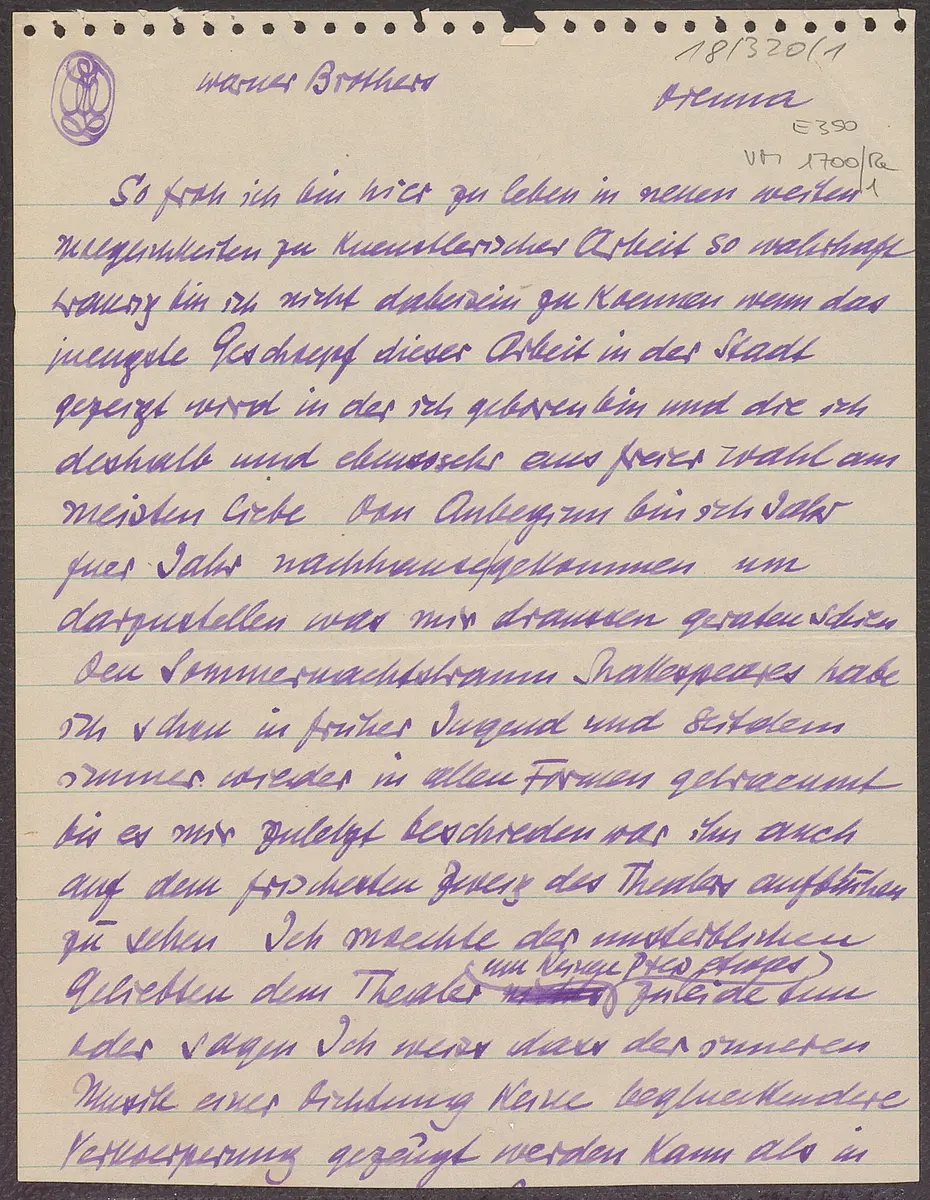 18/320/1
Warner Brothers
Vienna
E 350
VM 1700/Re
1
So froh ich bin hier zu leben in neuen weiten
moeglichkeiten zu kuenstlerischer Arbeit so wahrhaft
traurig bin ich nicht dabeisein zu koennen wenn das
juengste Geschoepf dieser Arbeit in der Stadt
gezeigt wird in der ich geboren bin und die ich
deshalb und ebensosehr aus freier wahl am
meisten liebe Von Anbeginn bin ich Jahr
fuer Jahr nachhause gekommen um
darzustellen was mir draussen geraten schien
Den Sommernachtstraum Shakespeares habe
ich schon in früher Jugend und seitdem
immer wieder in allen Formen getraeumt
bis es mir zuletzt beschieden war ihn auch
auf dem frischesten Zweig des Theaters aufblühen
zu sehen Ich moechte der unsterblichen
um keinen Preis
Geliebten dem Theater zuleide tun
oder sagen Ich weiss dass der inneren
Musik einer Dichtung keine beglueckendere
Verkoerperung gezeugt werden kann als in